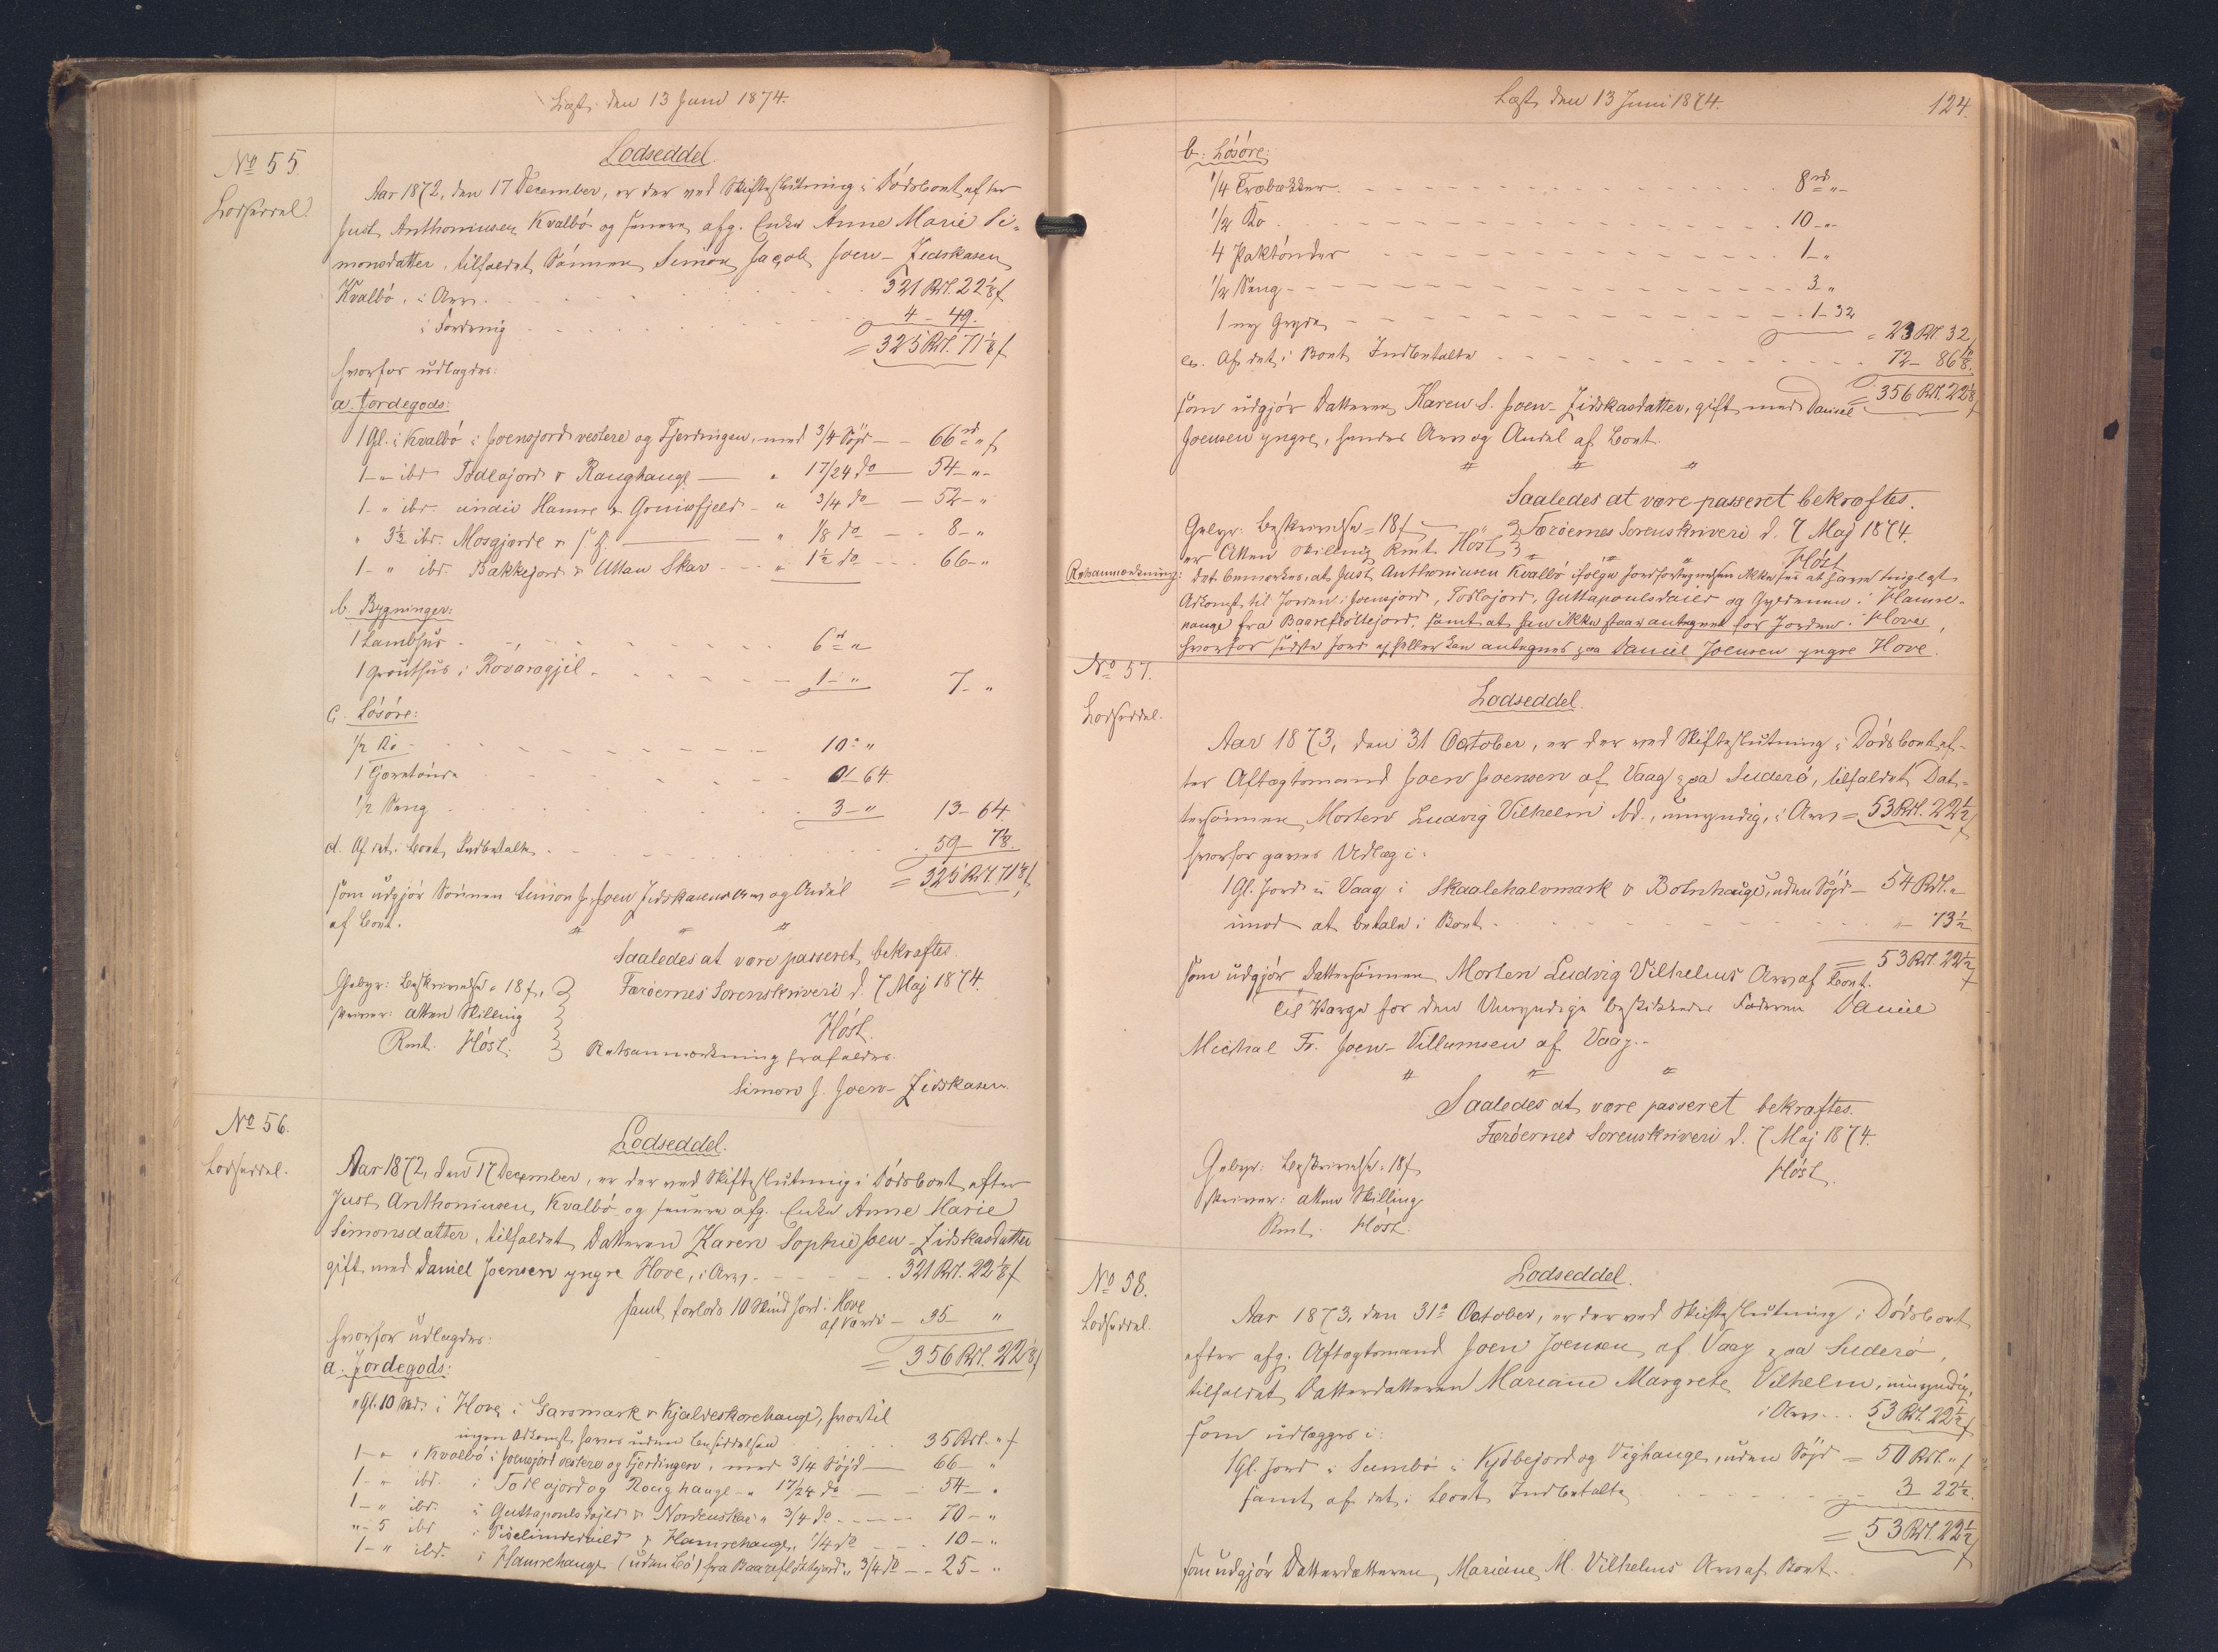 Læst den 13 Juni 1874.
No 55.
Lodseddel.
Lodseddel.
Aar 1872, den 17 December, er der ved Skifteslutning i Dødsboet efter
Just Anthoniusen Kvalbö og senere afg. Enke Anne Marie Si-
monsdatter, tilfaldet Sønnen Simon Jacob Joen-Zidskasen
Kvalbö, i Arv 321 Rdl. 22 1/8 f
i Fordring 4 - 49.
= 325 Rdl. 71 1/8 f
hvorfor udlagdes:
a. Jordegods:
1 Gl. i Kvalbö i Joensjord vestere og Fjerdingen, med 3/4 Söjd — 66 rd " f
1 - " ibd. Todlajord & Raughauge — " 17/24 do — 54 - " -
1 - " ibd. undir Hamre & Gruisfjeld - " 3/4 do — 52 - "
" 3 1/2 ibd. Mosgjærde — " 1/8 do — 8 - "
1 - " ibd. Bakkejord & Uttan Skar - " 1 1/2 do - 66 - "
b. Bygninger:
1 Lambhus 6 rd "
1 Grouthus i Rovaragjil 1 - " 7 - "
c. Lösöre:
1/2 Ko 10 - "
1 Gjæretönde " 64
1/2 Seng 3 - " 13 - 64
d. Af det i Boet Indbetalte 59 - 7 1/8
= 325 Rdl. 71 1/8 f
som udgjör Sönnen Simon J. Joen Zidskasens Arv og Andel
af Boet.
Saaledes at være passeret, bekræftes.
Færöernes Sorenskriveri d. 7 Maj 1874.
Höst.
Gebyr: Beskrivelse = 18 f,
skriver: atten Skilling
Rmt. Höst.
Retsanmærkning frafaldes.
Simon J. Joen-Zidskasen.
No 56.
Lodseddel.
Lodseddel.
Aar 1872, den 17 December, er der ved Skifteslutning i Dødsboet efter
Just Anthoniusen Kvalbö og senere afg. Enke Anne Marie
Simonsdatter, tilfaldet Datteren Karen Sophie Joen-Zidskasdatter
gift med Daniel Joensen yngre Hove, i Arv 321 Rdl. 22 1/8 f
samt forlods 10 Skind Jord i Hove
af Værdi — 35 - "
= 356 Rdl. 22 1/8 f
hvorfor udlagdes:
a. Jordegods:
" Gl. 10 Skd. i Hove i Garsmark & Kjaldeskorehauge, hvortil
ingen Adkomst haves uden Besiddelsen 35 Rdl. " f
1 - " i Kvalbö i Joensjord vestere og Fjerdingen, med 3/4 Söjd — 66 - "
1 - " ibd. i Todlajord og Roughauge - " 17/24 do — 54 - "
1 - " ibd. i Guttapoulsdajld & Nordenskar " 3/4 do — 70 - "
" - 5 ibd. & Hamrehauge, 1/4 do — 10 - "
1 - " ibd. i Hamrehauge (uden Bö) fra Baareflöttejord " 3/4 do — 25 - "
Læst den 13 Juni 1874.
124.
b. Lösöre:
1/4 Træbakker 8 rd " -
1/2 Ko 10 - " -
4 Paktönder 1 - "
1/2 Seng 3 - "
1 ny Gryde 1 - 32
= 23 Rdl. 32
c. Af det i Boet Indbetalte 72 - 86 1/8
= 356 Rdl. 22 1/8 f
som udgjör Datteren Karen S. Joen-Zidskasdatter, gift med Daniel
Joensen yngre, hendes Arv og Andel af Boet.
Saaledes at være passeret bekræftes.
Færöernes Sorenskriveri d. 7 Maj 1874.
Höst
Gebyr: Beskrivelse = 18 f
er Atten Skilling Rmt. Höst
Retsanmærkning: Det bemærkes, at Just Anthoniusen Kvalbö ifölge Jordfortegnelsen ikke sees at have tinglæst
Adkomst til Jorden i Joensjord, Todlajord, Guttapoulsdaild og Hamre-
hauge fra Baareflöttejord, samt at han ikke staar antegnet for Jorden i Hove,
hvorfor sidste Jord ej heller kan antegnes paa Daniel Joensen yngre Hove.
No 57.
Lodseddel.
Lodseddel.
Aar 1873, den 31 October, er der ved Skifteslutning i Dödsboet ef-
ter Aftægtsmand Joen Joensen af Vaag paa Suderö, tilfaldet Dat-
tersönnen Morten Ludvig Vilhelm ibd., umyndig, i Arv = 53 Rdl. 22 1/2 f
hvorfor gaves Udlæg i:
1 Gl. Jord i Vaag i Skaalehalvmark & Botnhauge, uden Söjd — 54 Rdl. "
imod at betale i Boet " 73 1/2
= 53 Rdl. 22 1/2 f
som udgjör Dattersönnen Morten Ludvig Vilhelms Arv af Boet.
Til Værge for den Umyndige beskikkedes Faderen Daniel
Michal Fr. Joen-Villumsen af Vaag. -
Saaledes at være passeret bekræftes.
Færöernes Sorenskriveri d. 7 Maj 1874.
Höst.
Gebyr: Beskrivelse = 18 f
skriver: atten Skilling
Rmt. Höst.
No 58.
Lodseddel.
Lodseddel.
Aar 1873, den 31te October, er der ved Skifteslutning i Dödsboet
efter afg. Aftægtsmand Joen Joensen af Vaag paa Suderö,
tilfaldet Datterdatteren Mariane Margrete Vilhelm, umyndig,
i Arv 53 Rdl. 22 1/2 f
som udlægges i:
1 Gl. Jord i Sumbö i Kydbejord og Vighauge, uden Söjd = 50 Rdl. " f
samt af det i Boet Indbetalte 3 - 22 1/2.
= 53 Rdl. 22 1/2 f
som udgjör Datterdatteren Mariane M. Vilhelms Arv af Boet.